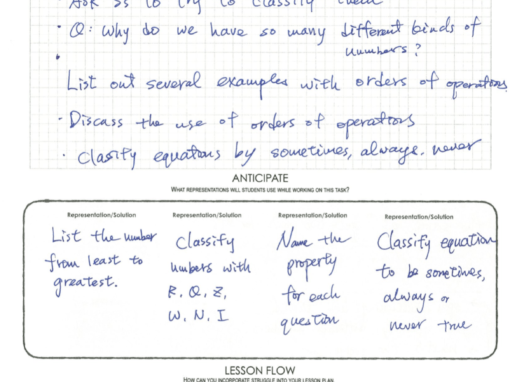 Ask Ss to try to classify them
· Q: Why do we have so many different kinds of
numbers?
·
List out several examples with orders of operations
· Discass the use of orders of operations
· Classify equations by sometimes, always, never
ANTICIPATE
WHAT REPRESENTATIONS WILL STUDENTS USE WHILE WORKING ON THIS TASK?
Representation/Solution Representation/Solution Representation/Solution Representation/Solution
List the number
from least to
greatest.
Classify
numbers with
R, Q, Z,
W, N, I
Name the
property
for each
question
Classify equation
to be sometimes,
always or
never true
LESSON FLOW
HOW CAN YOU INCORPORATE STRUGGLE INTO YOUR LESSON PLAN